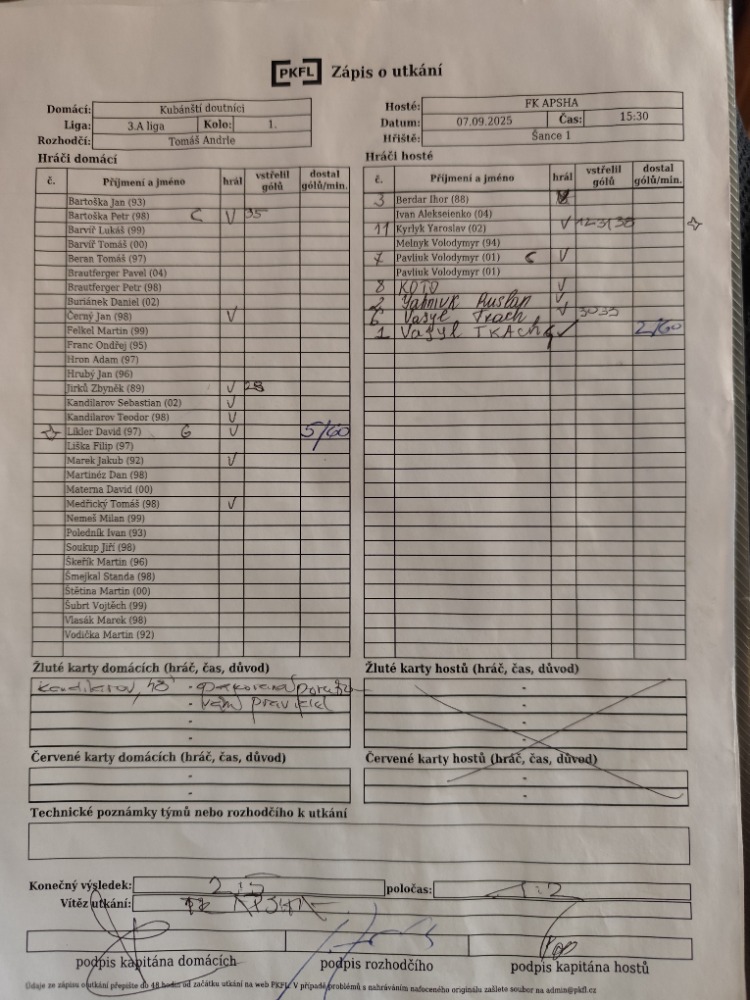 PKFL Zápis o utkání
Domácí: Kubánští doutníci
Liga: 3.A liga Kolo: 1.
Rozhodčí: Tomáš Andrle
Hosté: FK APSHA
Datum: 07.09.2025 Čas: 15:30
Hřiště: Šance 1
Hráči domácí
č. Příjmení a jméno hrál vstřelil gólů dostal gólů/min.
Bartoška Jan (93)
Bartoška Petr (98) C V 35
Barvíř Lukáš (99)
Barvíř Tomáš (00)
Beran Tomáš (97)
Brautferger Pavel (04)
Brautferger Petr (98)
Buriánek Daniel (02)
Černý Jan (98) V
Felkel Martin (99)
Franc Ondřej (95)
Hron Adam (97)
Hrubý Jan (96)
Jirků Zbyněk (89) V 28
Kandilarov Sebastian (02) V
Kandilarov Teodor (98) V
Likler David (97) G V 5/60
Liška Filip (97)
Marek Jakub (92) V
Martinéz Dan (98)
Materna David (00)
Medřický Tomáš (98) V
Nemeš Milan (99)
Poledník Ivan (93)
Soukup Jiří (98)
Škeřík Martin (96)
Šmejkal Standa (98)
Štětina Martin (00)
Šubrt Vojtěch (99)
Vlasák Marek (98)
Vodička Martin (92)
Hráči hosté
č. Příjmení a jméno hrál vstřelil gólů dostal gólů/min.
3 Berdar Ihor (88)
Ivan Alekseienko (04)
11 Kyrlyk Yaroslav (02) V 12 31 38
Melnyk Volodymyr (94)
7 Pavliuk Volodymyr (01) C V
Pavliuk Volodymyr (01)
8 КОТО V
2 Ruslan V
6 Vasyl Tkach V 30 33
1 Vasyl TKACh G V 2/60
Žluté karty domácích (hráč, čas, důvod)
Kandilarov, 48' -
-
-
-
Žluté karty hostů (hráč, čas, důvod)
-
-
-
-
Červené karty domácích (hráč, čas, důvod)
-
-
Červené karty hostů (hráč, čas, důvod)
-
-
Technické poznámky týmů nebo rozhodčího k utkání
Konečný výsledek: 2:5 poločas: 1:2
Vítěz utkání: FK APSHA
podpis kapitána domácích podpis rozhodčího podpis kapitána hostů
Údaje ze zápisu o utkání přepište do 48 hodin od začátku utkání na web PKFL. V případě problémů s nahráváním nafoceného originálu zašlete soubor na admin@pkfl.cz